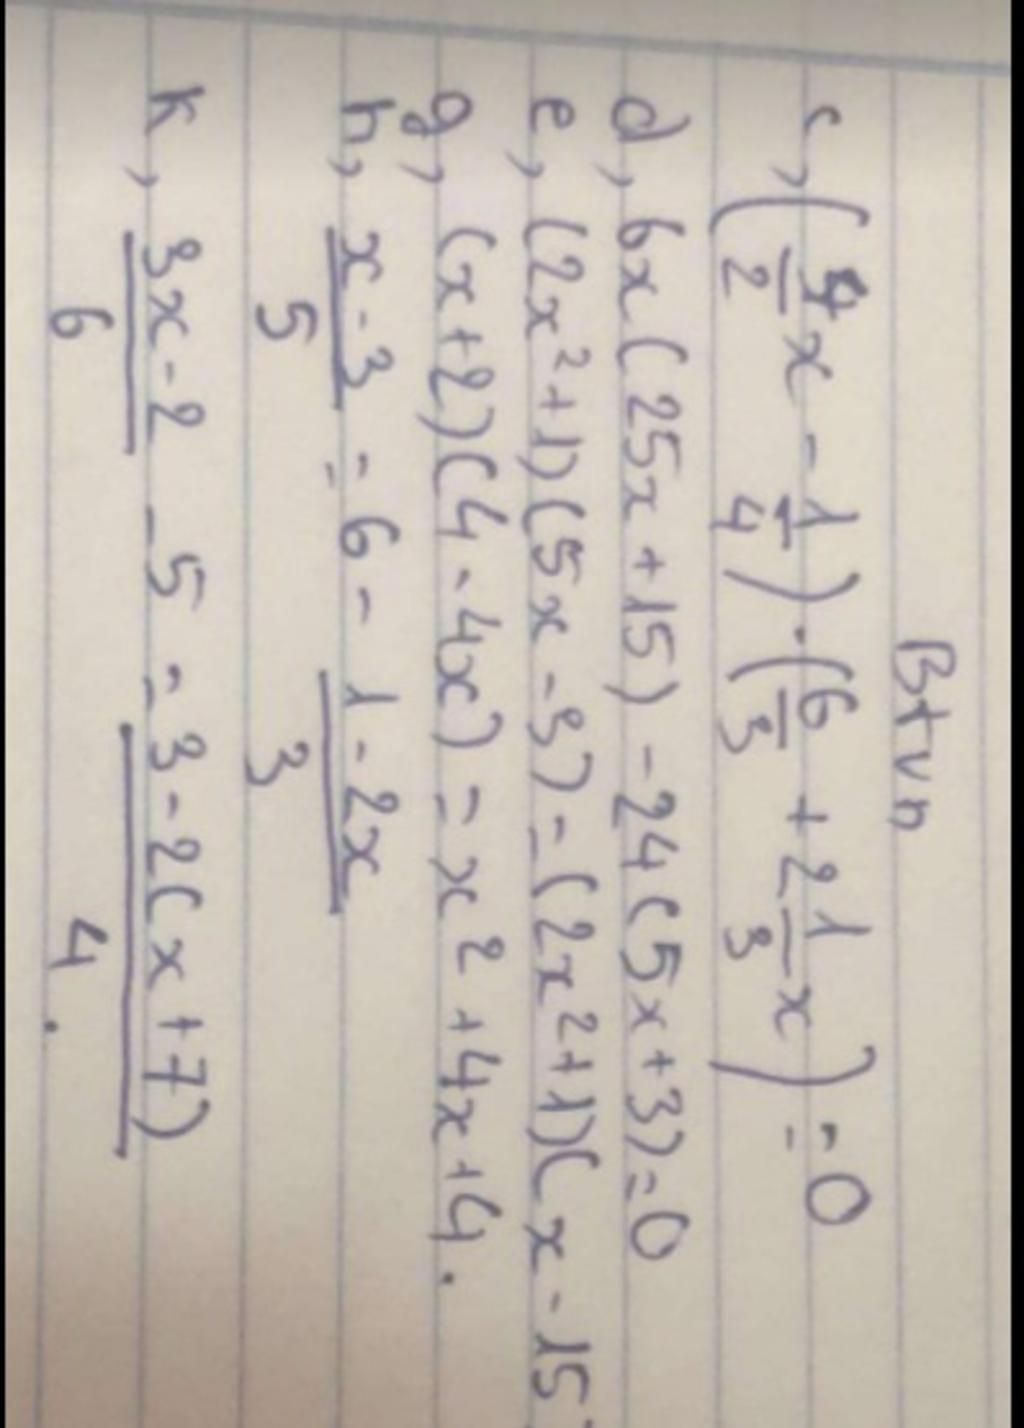 Btvn
c, (9/2 x - 1/4) . (6/3 + 2 1/3 x) = 0
d, 6x(25x + 15) - 24(5x + 3) = 0
e, (2x² + 1)(5x - 3) = (2x² + 1)(x - 15
g, (x + 2)(4 - 4x) = x² + 4x + 4.
h, x - 3 / 5 = 6 - 1 - 2x / 3
k, 3x - 2 / 6 - 5 = 3 - 2(x + 7) / 4.